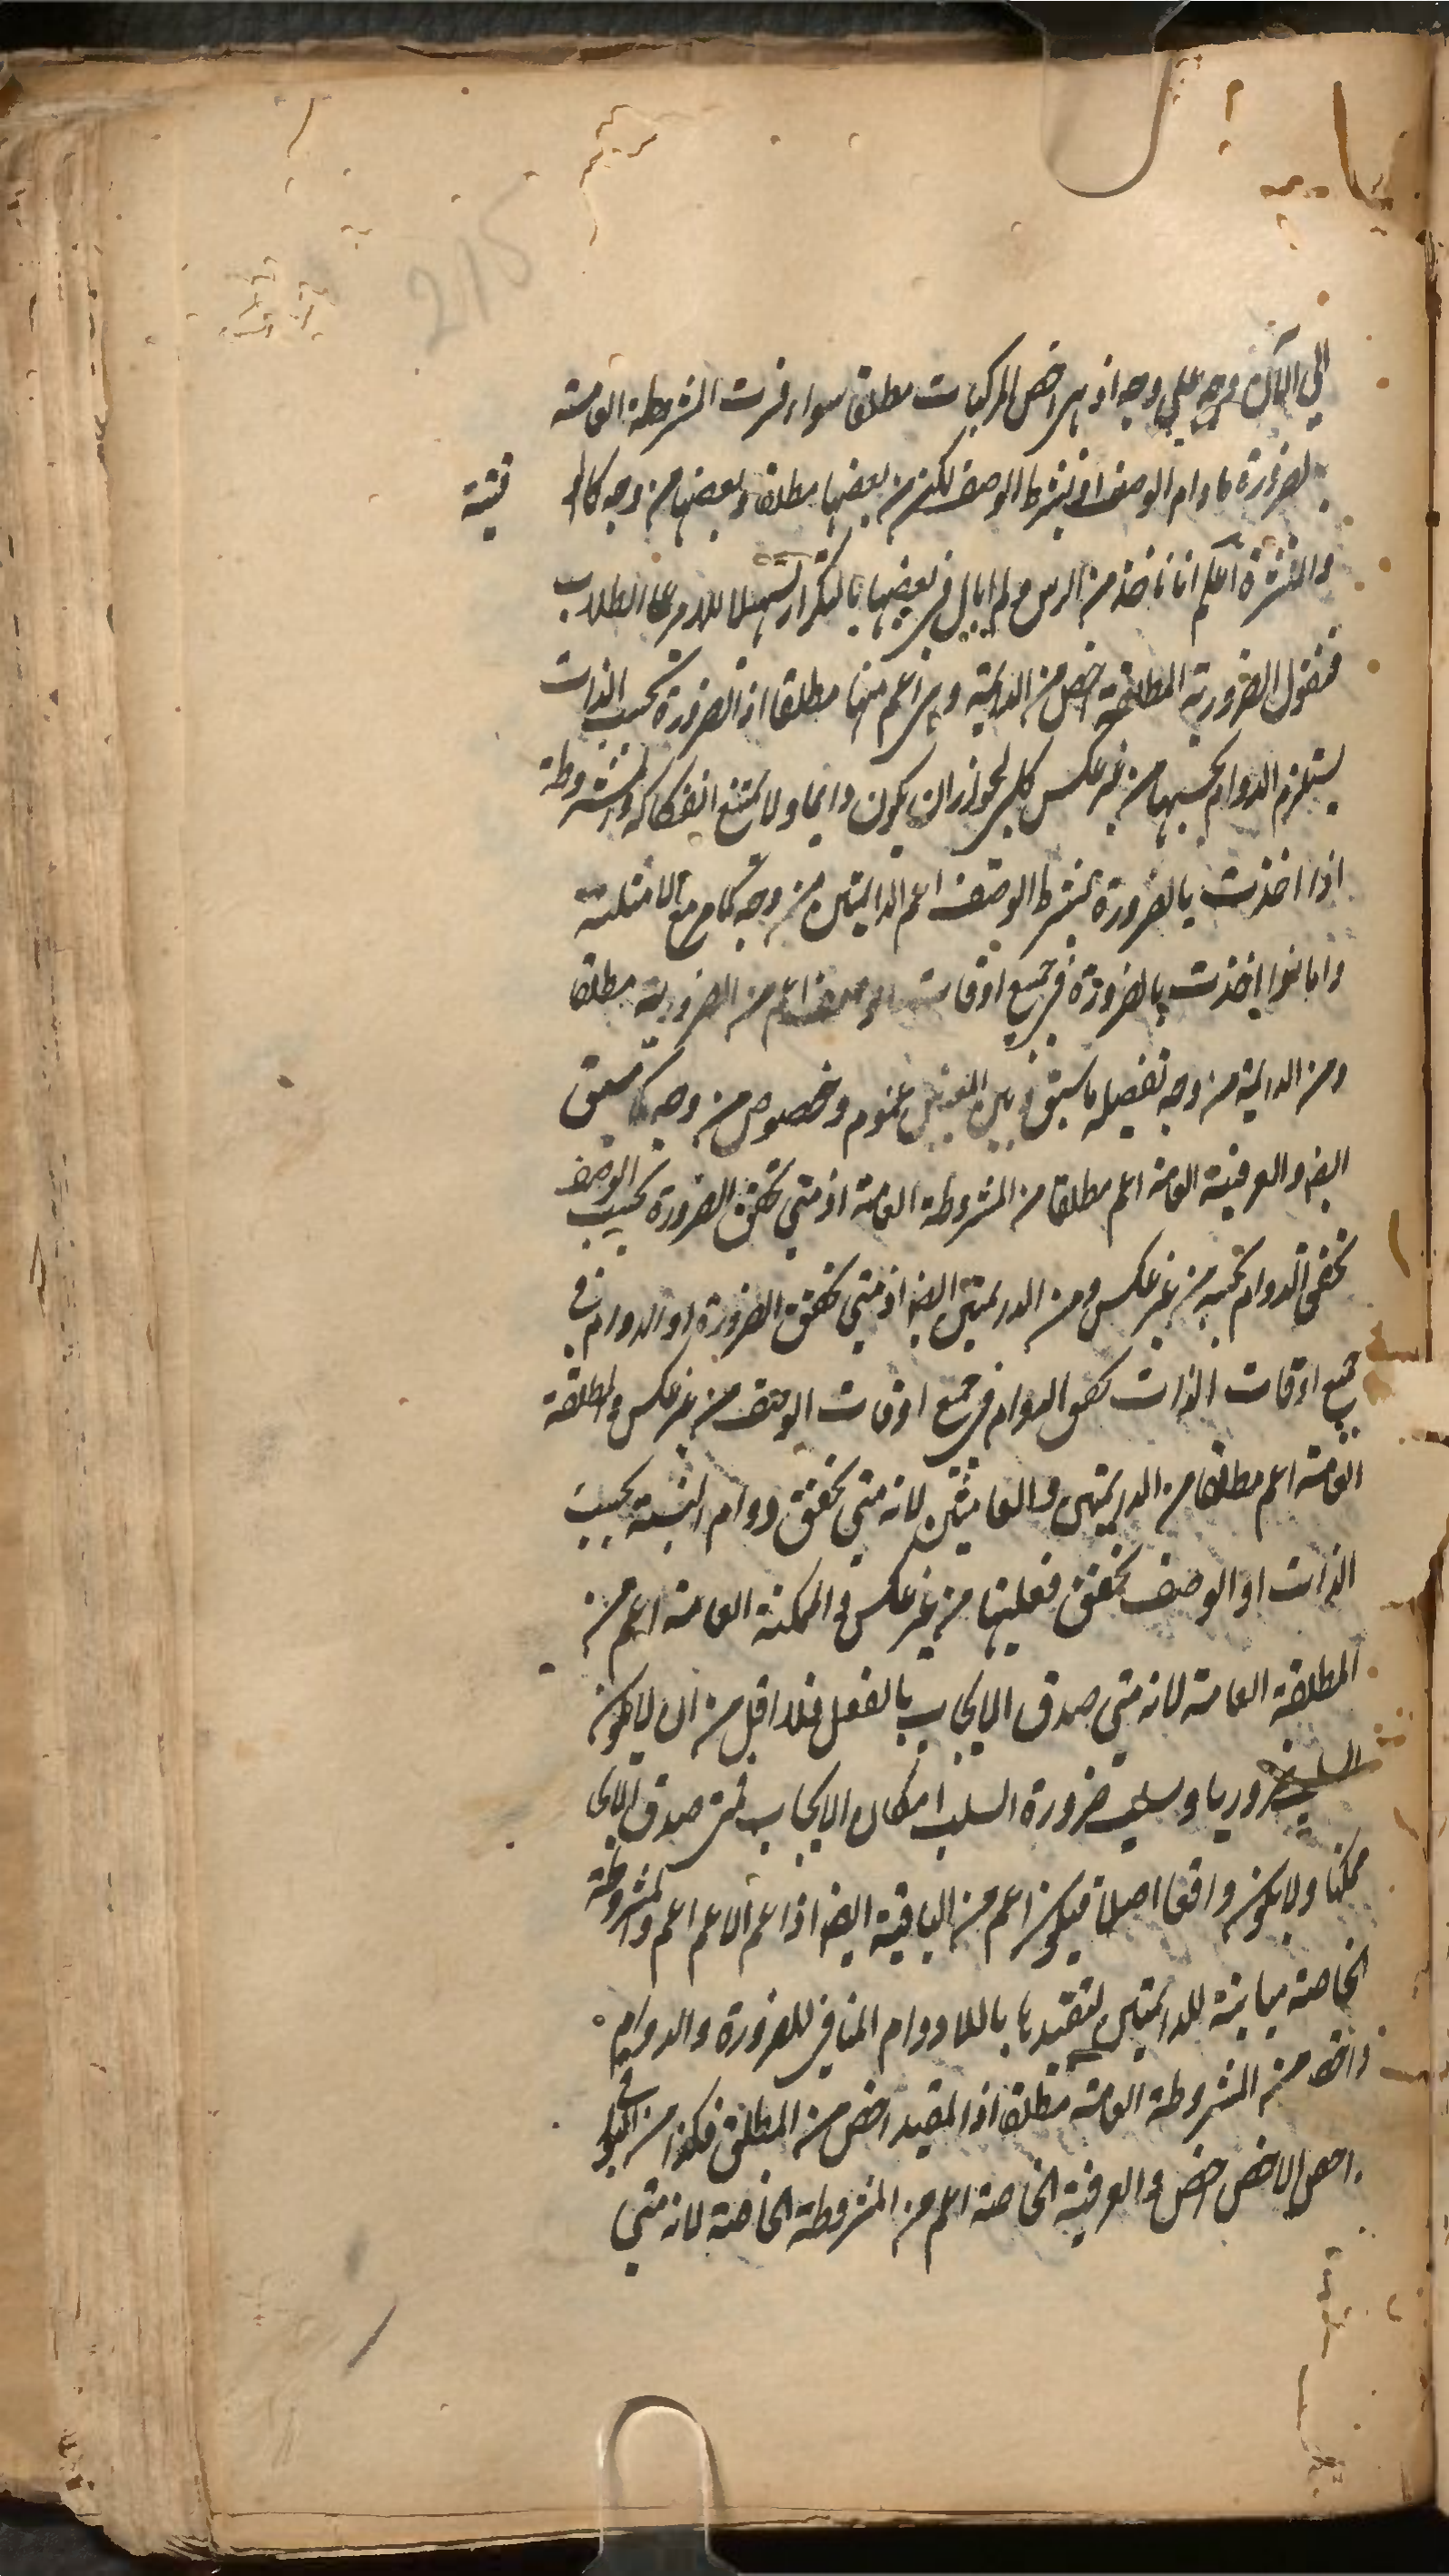 215
الي الآن وجه علي وجه اذ هي اخص المركبات مطلقا سواء فسرت المشروطة العامة
بالضرورة مادام الوصف او بشرط الوصف لكن من بعضها مطلقا وبعضها من وجه كالو
قتية
والمنتشرة اعلم انا ناخذ من الراس ولم ابال في بعضها بالتكرار تسهيلا للامر علي الطلاب
فنقول الضرورية المطلقة اخص من الدايمة وهي اعم منها مطلقا اذ الضرورة بحسب الذات
يستلزم الدوام بحسبها من غير عكس كلي لجواز ان يكون دايما ولا يمتنع انفكاكه والمشروطة
اذا اخذت بالضرورة بشرط الوصف اعم الدايمتين من وجه كما مر مع الامثلة
واما اذا اخذت بالضرورة في جميع اوقات الوصف اعم من الضرورية مطلقا
ومن الدايمة من وجه تفصيله ما سبق وبين المعنيين عموم وخصوص من وجه كما سبق
ايضا والعرفية العامة اعم مطلقا من المشروطة العامة اذ متي تحقق الضرورة بحسب الوصف
تحقق الدوام بحسبه من غير عكس ومن الدايمتين ايضا اذ متي تحقق الضرورة او الدوام في
جميع اوقات الذات تحقق الدوام في جميع اوقات الوصف من غير عكس والمطلقة
العامة اعم مطلقا من الدايمتين والعامتين لانه متي تحقق دوام النسبة بحسب
الذات او الوصف تحقق فعليتها من غير عكس والممكنة العامة اعم من
المطلقة العامة لانه متي صدق الايجاب بالفعل فلا اقل من ان لا يكون
السلب ضروريا وسلب ضرورة السلب امكان الايجاب فمتي صدق الايجا
ممكنا ولا يكون واقعا اصلا فيكون اعم من الباقية ايضا اذ اعم الاعم اعم والمشروطة
الخاصة مباينة للدايمتين لتقييدها باللادوام المنافي للضرورة والدوام
واخص من المشروطة العامة مطلقا اذ المقيد اخص من المطلق فكذا من البواقي
اخص الاخص اخص والعرفية الخاصة اعم من المشروطة الخاصة لانه متي